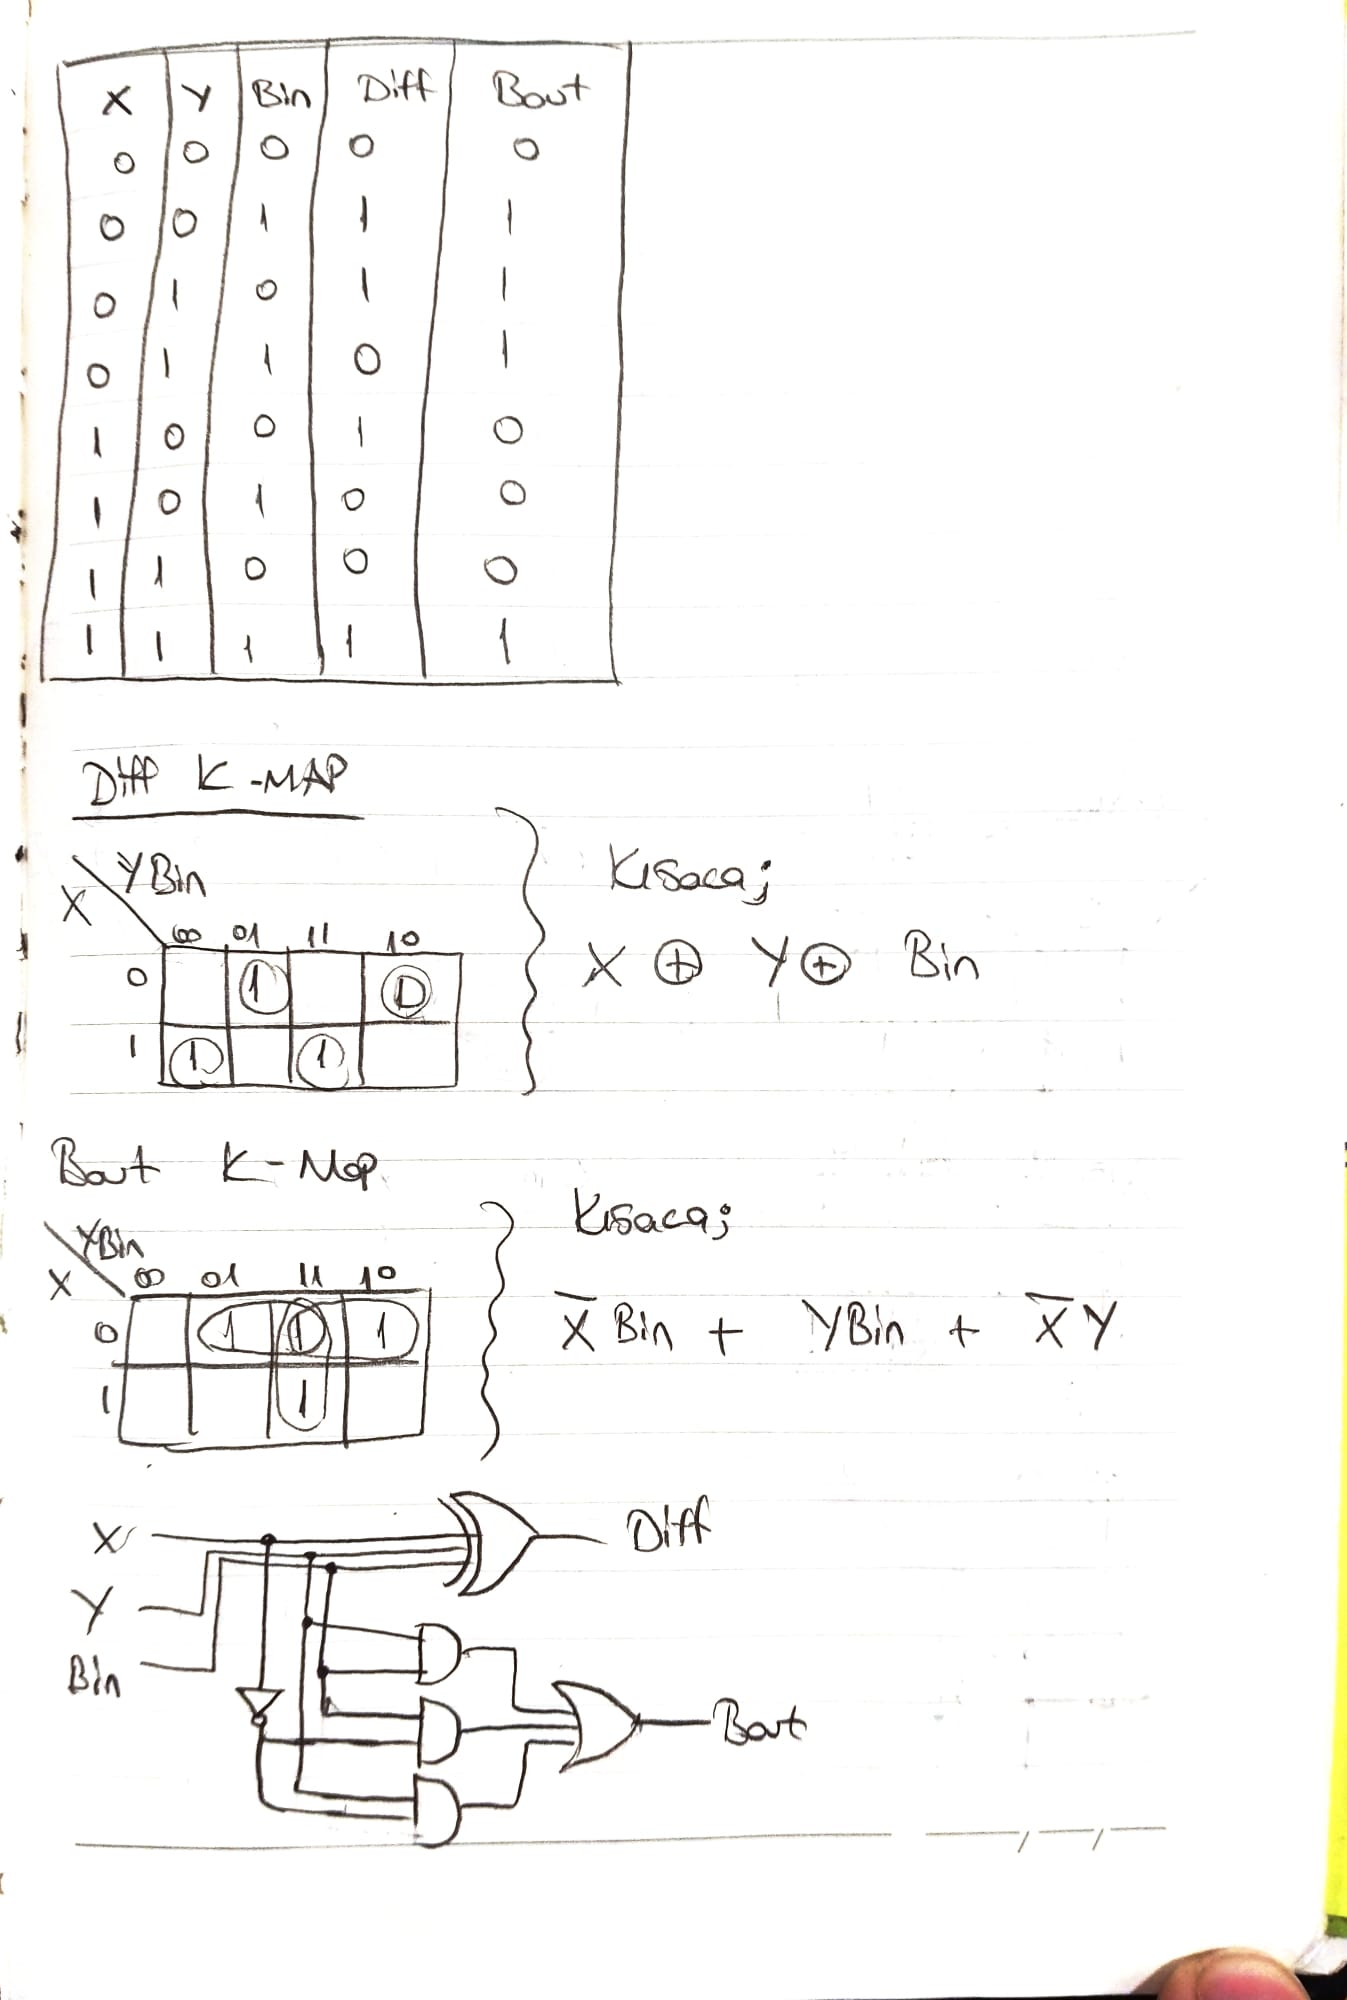 X Y Bin Diff Bout
0 0 0 0 0
0 0 1 1 1
0 1 0 1 1
0 1 1 0 1
1 0 0 1 0
1 0 1 0 0
1 1 0 0 0
1 1 1 1 1
Diff K-MAP
YBin
X
00 01 11 10
0 1 1
1 1 1
Kısaca;
X ⊕ Y ⊕ Bin
Bout K-Map
YBin
X
00 01 11 10
0 1 1 1
1 1
Kısaca;
X̅ Bin + YBin + X̅ Y
X
Y
Bin
Diff
Bout